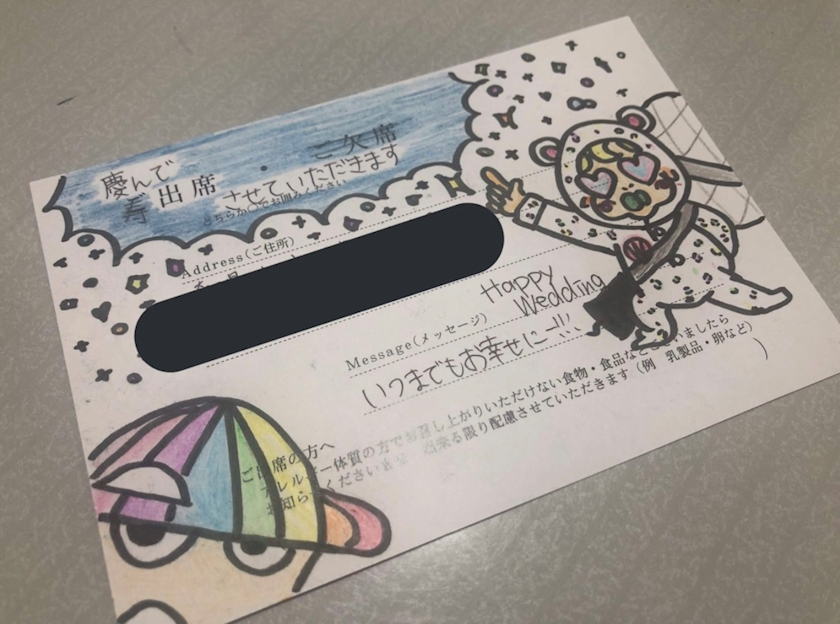 慶んで
寿 出席 ・ ご欠席
させていただきます
どちらか○でお囲みください
Address(ご住所)
Happy
Wedding
Message(メッセージ)
いつまでもお幸せにー!!!
ご出席の方へ
アレルギー体質の方でお召し上がりいただけない食物・食品など いましたら
お知らせください 出来る限り配慮させていただきます(例 乳製品・卵など)
)